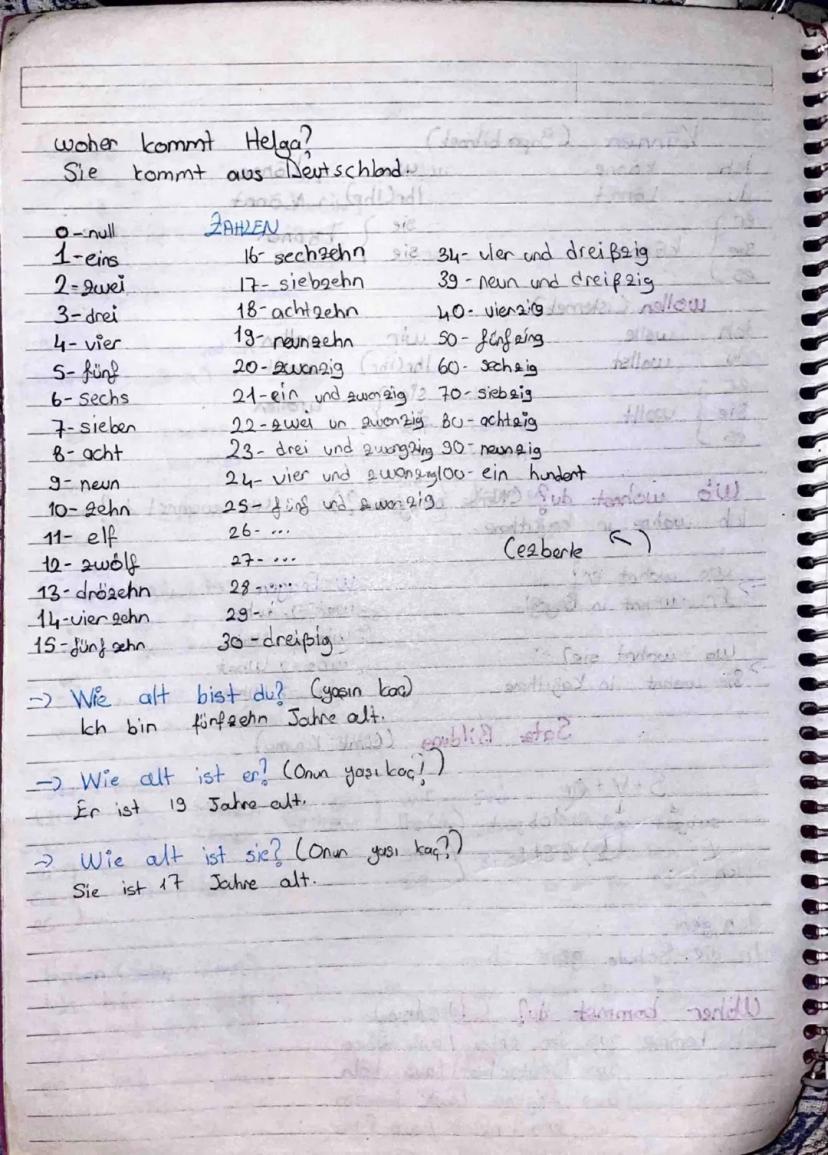 woher kommt Helga?
Sie kommt aus Deutschland.
ZAHLEN
0-null
1-eins
2-zwei
3-drei
4-vier
5-fünf
6-sechs
7-sieben
8-acht
9-neun
10-zehn
11-elf
12-zwölf
13-drözehn
14-vier zehn
15-fünf zehn
16-sechzehn
17-siebzehn
18-achtzehn
19-neunzehn
20-zwanzig
21-ein und zwanzig
22-zwei un zwanzig
23-drei und zwangzing
24-vier und zwanzing
25-fünf und zwanzig
26-...
27-...
28-...
29-..
30-dreißig
34-vier und dreißzig
39-neun und dreißzig
40-vierzig
50-fünfzing
60-sechzig
70-siebzig
80-achtzig
90-neunzig
100-ein hundert
(ezberle ↖)
→ Wie alt bist du? (yaşın kaç)
Ich bin fünfzehn Jahre alt.
→ Wie alt ist er? (Onun yaşı kaç?)
Er ist 19 Jahre alt.
→ Wie alt ist sie? (Onun yaşı kaç?)
Sie ist 17 Jahre alt.